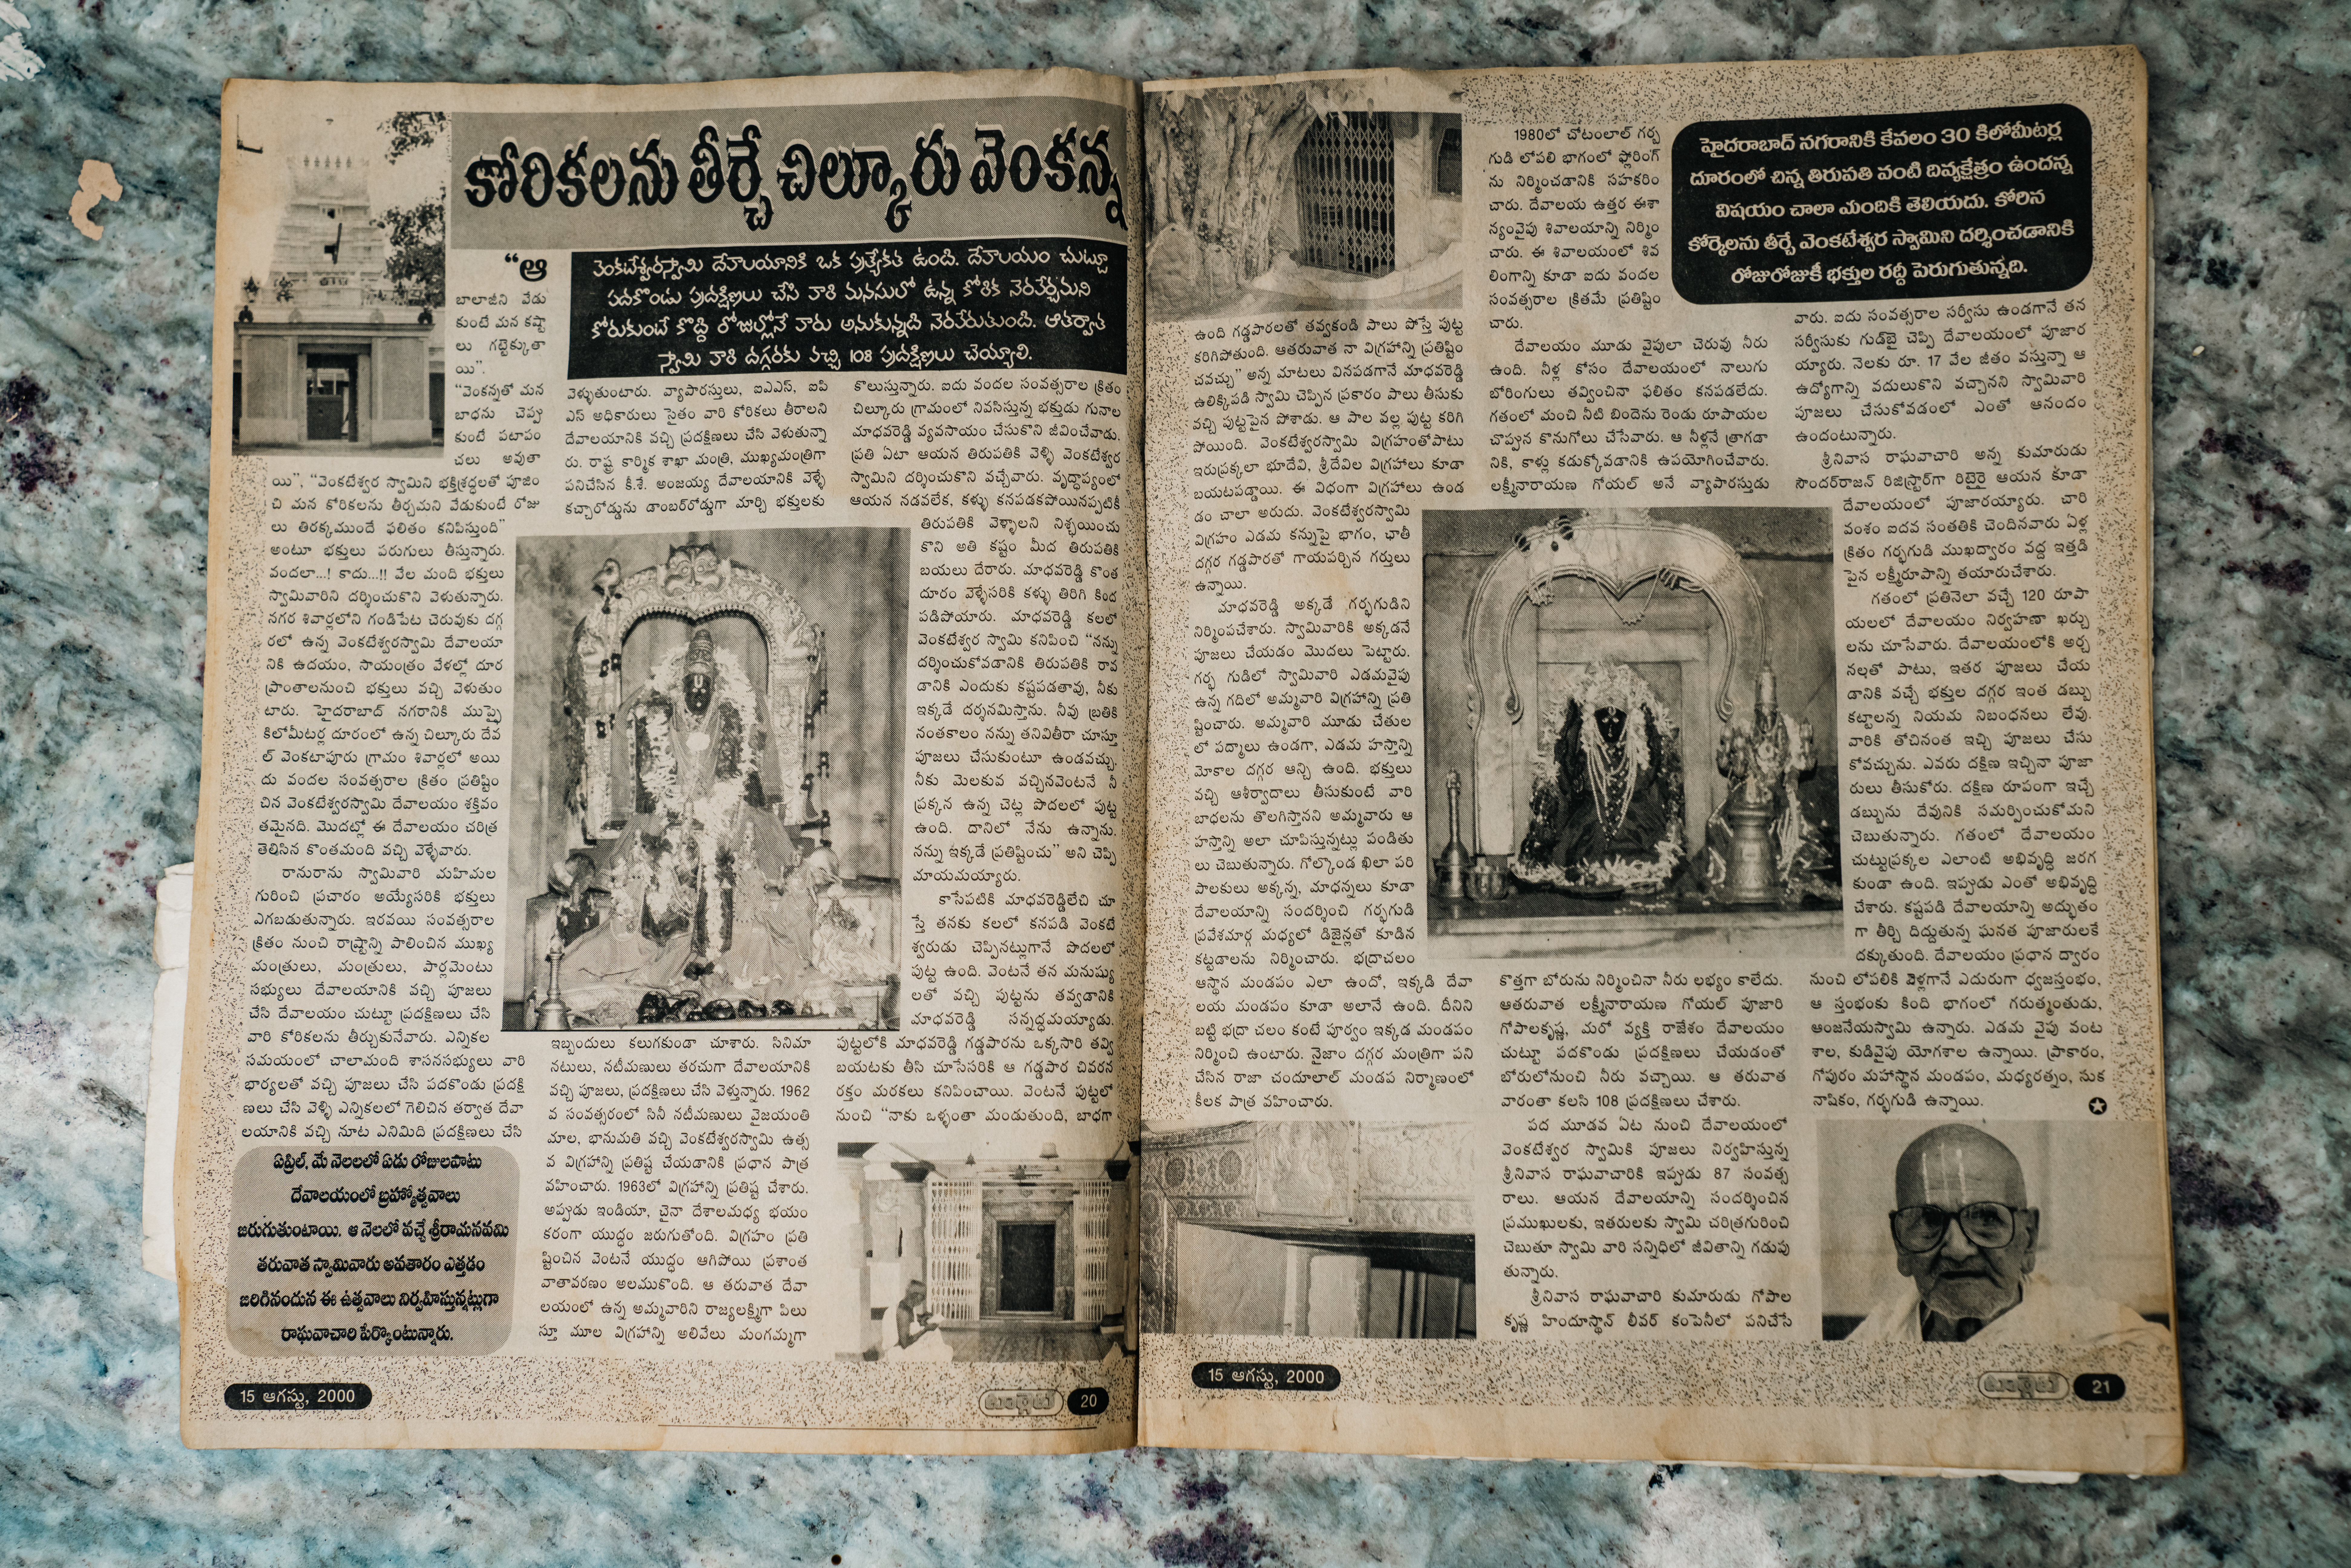 కోరికలను తీర్చే చిల్కూరు వెంకన్న
వెంకటేశ్వరస్వామి దేవాలయానికి ఒక ప్రత్యేకత ఉంది. దేవాలయం చుట్టూ
పదకొండు ప్రదక్షిణలు చేసి వారి మనసులో ఉన్న కోరిక నెరవేర్చమని
కోరుకుంటే కొద్ది రోజుల్లోనే వారు అనుకున్నది నెరవేరుతుంది. ఆతర్వాత
స్వామి వారి దగ్గరకు వచ్చి 108 ప్రదక్షిణలు చెయ్యాలి.
“ఆ
బాలాజీని వేడు
కుంటే మన కష్టా
లు గట్టెక్కుతా
యి”.
“వెంకన్నతో మన
బాధను చెప్పు
కుంటే పటాపం
చలు అవుతా
యి”, “వెంకటేశ్వర స్వామిని భక్తిశ్రద్ధలతో పూజిం
చి మన కోరికలను తీర్చమని వేడుకుంటే రోజు
లు తిరక్కముందే ఫలితం కనిపిస్తుంది”
అంటూ భక్తులు పరుగులు తీస్తున్నారు.
వందలా...! కాదు...!! వేల మంది భక్తులు
స్వామివారిని దర్శించుకొని వెళుతున్నారు.
నగర శివార్లలోని గండిపేట చెరువుకు దగ్గ
రలో ఉన్న వెంకటేశ్వరస్వామి దేవాలయా
నికి ఉదయం, సాయంత్రం వేళల్లో దూర
ప్రాంతాలనుంచి భక్తులు వచ్చి వెళుతుం
టారు. హైదరాబాద్ నగరానికి ముప్పై
కిలోమీటర్ల దూరంలో ఉన్న చిల్కూరు దేవ
ల్ వెంకటాపూరు గ్రామం శివార్లలో అయి
దు వందల సంవత్సరాల క్రితం ప్రతిష్టిం
చిన వెంకటేశ్వరస్వామి దేవాలయం శక్తివం
తమైనది. మొదట్లో ఈ దేవాలయం చరిత్ర
తెలిసిన కొంతమంది వచ్చి వెళ్ళేవారు.
రానురాను స్వామివారి మహిమల
గురించి ప్రచారం అయ్యేసరికి భక్తులు
ఎగబడుతున్నారు. ఇరవయి సంవత్సరాల
క్రితం నుంచి రాష్ట్రాన్ని పాలించిన ముఖ్య
మంత్రులు, మంత్రులు, పార్లమెంటు
సభ్యులు దేవాలయానికి వచ్చి పూజలు
చేసి దేవాలయం చుట్టూ ప్రదక్షిణలు చేసి
వారి కోరికలను తీర్చుకునేవారు. ఎన్నికల
సమయంలో చాలామంది శాసనసభ్యులు వారి
భార్యలతో వచ్చి పూజలు చేసి పదకొండు ప్రదక్షి
ణలు చేసి వెళ్ళి ఎన్నికలలో గెలిచిన తర్వాత దేవా
లయానికి వచ్చి నూట ఎనిమిది ప్రదక్షిణలు చేసి
ఏప్రిల్, మే నెలలలో ఏడు రోజులపాటు
దేవాలయంలో బ్రహ్మోత్సవాలు
జరుగుతుంటాయి. ఆ నెలలో వచ్చే శ్రీరామనవమి
తరువాత స్వామివారు అవతారం ఎత్తడం
జరిగినందున ఈ ఉత్సవాలు నిర్వహిస్తున్నట్లుగా
రాఘవాచారి పేర్కొంటున్నారు.
వెళ్ళుతుంటారు. వ్యాపారస్తులు, ఐఎఎస్, ఐపి
ఎస్ అధికారులు సైతం వారి కోరికలు తీరాలని
దేవాలయానికి వచ్చి ప్రదక్షిణలు చేసి వెళుతున్నా
రు. రాష్ట్ర కార్మిక శాఖా మంత్రి, ముఖ్యమంత్రిగా
పనిచేసిన కీ.శే. అంజయ్య దేవాలయానికి వెళ్ళే
కచ్చారోడ్డును డాంబర్‌రోడ్డుగా మార్చి భక్తులకు
ఇబ్బందులు కలుగకుండా చూశారు. సినిమా
నటులు, నటీమణులు తరచుగా దేవాలయానికి
వచ్చి పూజలు, ప్రదక్షిణలు చేసి వెళ్తున్నారు. 1962
వ సంవత్సరంలో సినీ నటీమణులు వైజయంతి
మాల, భానుమతి వచ్చి వెంకటేశ్వరస్వామి ఉత్స
వ విగ్రహాన్ని ప్రతిష్ట చేయడానికి ప్రధాన పాత్ర
వహించారు. 1963లో విగ్రహాన్ని ప్రతిష్ట చేశారు.
అప్పుడు ఇండియా, చైనా దేశాలమధ్య భయం
కరంగా యుద్ధం జరుగుతోంది. విగ్రహం ప్రతి
ష్టించిన వెంటనే యుద్ధం ఆగిపోయి ప్రశాంత
వాతావరణం అలముకొంది. ఆ తరువాత దేవా
లయంలో ఉన్న అమ్మవారిని రాజ్యలక్ష్మిగా పిలు
స్తూ మూల విగ్రహాన్ని అలివేలు మంగమ్మగా
కొలుస్తున్నారు. ఐదు వందల సంవత్సరాల క్రితం
చిల్కూరు గ్రామంలో నివసిస్తున్న భక్తుడు గునాల
మాధవరెడ్డి వ్యవసాయం చేసుకొని జీవించేవాడు.
ప్రతి ఏటా ఆయన తిరుపతికి వెళ్ళి వెంకటేశ్వర
స్వామిని దర్శించుకొని వచ్చేవారు. వృద్ధాప్యంలో
ఆయన నడవలేక, కళ్ళు కనపడకపోయినప్పటికీ
తిరుపతికి వెళ్ళాలని నిశ్చయించు
కొని అతి కష్టం మీద తిరుపతికి
బయలు దేరారు. మాధవరెడ్డి కొంత
దూరం వెళ్ళేసరికి కళ్ళు తిరిగి కింద
పడిపోయారు. మాధవరెడ్డి కలలో
వెంకటేశ్వర స్వామి కనిపించి “నన్ను
దర్శించుకోవడానికి తిరుపతికి రావ
డానికి ఎందుకు కష్టపడతావు, నీకు
ఇక్కడే దర్శనమిస్తాను. నీవు బ్రతికి
నంతకాలం నన్ను తనివితీరా చూస్తూ
పూజలు చేసుకుంటూ ఉండవచ్చు.
నీకు మెలకువ వచ్చినవెంటనే నీ
ప్రక్కన ఉన్న చెట్ల పొదలలో పుట్ట
ఉంది. దానిలో నేను ఉన్నాను.
నన్ను ఇక్కడే ప్రతిష్టించు” అని చెప్పి
మాయమయ్యారు.
కాసేపటికి మాధవరెడ్డిలేచి చూ
స్తే తనకు కలలో కనపడి వెంకటే
శ్వరుడు చెప్పినట్లుగానే పొదలలో
పుట్ట ఉంది. వెంటనే తన మనుష్యు
లతో వచ్చి పుట్టను తవ్వడానికి
మాధవరెడ్డి సన్నద్ధమయ్యాడు.
పుట్టలోకి మాధవరెడ్డి గడ్డపారను ఒక్కసారి తవ్వి
బయటకు తీసి చూసేసరికి ఆ గడ్డపార చివరన
రక్తం మరకలు కనిపించాయి. వెంటనే పుట్టలో
నుంచి “నాకు ఒళ్ళంతా మండుతుంది, బాధగా
15 ఆగస్టు, 2000
20
ఉంది గడ్డపారలతో తవ్వకండి పాలు పోస్తే పుట్ట
కరిగిపోతుంది. ఆతరువాత నా విగ్రహాన్ని ప్రతిష్టిం
చవచ్చు” అన్న మాటలు వినపడగానే మాధవరెడ్డి
ఉలిక్కిపడి స్వామి చెప్పిన ప్రకారం పాలు తీసుకు
వచ్చి పుట్టపైన పోశాడు. ఆ పాల వల్ల పుట్ట కరిగి
పోయింది. వెంకటేశ్వరస్వామి విగ్రహంతోపాటు
ఇరుప్రక్కలా భూదేవి, శ్రీదేవిల విగ్రహాలు కూడా
బయటపడ్డాయి. ఈ విధంగా విగ్రహాలు ఉండ
డం చాలా అరుదు. వెంకటేశ్వరస్వామి
విగ్రహం ఎడమ కన్నుపై భాగం, ఛాతీ
దగ్గర గడ్డపారతో గాయపర్చిన గర్తులు
ఉన్నాయి.
మాధవరెడ్డి అక్కడే గర్భగుడిని
నిర్మింపచేశారు. స్వామివారికి అక్కడనే
పూజలు చేయడం మొదలు పెట్టారు.
గర్భ గుడిలో స్వామివారి ఎడమవైపు
ఉన్న గదిలో అమ్మవారి విగ్రహాన్ని ప్రతి
ష్టించారు. అమ్మవారి మూడు చేతుల
లో పద్మాలు ఉండగా, ఎడమ హస్తాన్ని
మోకాల దగ్గర ఆన్చి ఉంది. భక్తులు
వచ్చి ఆశీర్వాదాలు తీసుకుంటే వారి
బాధలను తొలగిస్తానని అమ్మవారు ఆ
హస్తాన్ని అలా చూపిస్తున్నట్లు పండితు
లు చెబుతున్నారు. గోల్కొండ ఖిలా పరి
పాలకులు అక్కన్న, మాధన్నలు కూడా
దేవాలయాన్ని సందర్శించి గర్భగుడి
ప్రవేశమార్గ మధ్యలో డిజైన్లతో కూడిన
కట్టడాలను నిర్మించారు. భద్రాచలం
ఆస్థాన మండపం ఎలా ఉందో, ఇక్కడి దేవా
లయ మండపం కూడా అలానే ఉంది. దీనిని
బట్టి భద్రా చలం కంటే పూర్వం ఇక్కడ మండపం
నిర్మించి ఉంటారు. నైజాం దగ్గర మంత్రిగా పని
చేసిన రాజా చందూలాల్ మండప నిర్మాణంలో
కీలక పాత్ర వహించారు.
1980లో చోటంలాల్ గర్భ
గుడి లోపలి భాగంలో ఫ్లోరింగ్
ను నిర్మించడానికి సహకరిం
చారు. దేవాలయ ఉత్తర ఈశా
న్యంవైపు శివాలయాన్ని నిర్మిం
చారు. ఈ శివాలయంలో శివ
లింగాన్ని కూడా ఐదు వందల
సంవత్సరాల క్రితమే ప్రతిష్టిం
చారు.
దేవాలయం మూడు వైపులా చెరువు నీరు
ఉంది. నీళ్ల కోసం దేవాలయంలో నాలుగు
బోరింగులు తవ్వించినా ఫలితం కనపడలేదు.
గతంలో మంచి నీటి బిందెను రెండు రూపాయల
చొప్పున కొనుగోలు చేసేవారు. ఆ నీళ్లనే త్రాగడా
నికి, కాళ్లు కడుక్కోవడానికి ఉపయోగించేవారు.
లక్ష్మీనారాయణ గోయల్ అనే వ్యాపారస్తుడు
కొత్తగా బోరును నిర్మించినా నీరు లభ్యం కాలేదు.
ఆతరువాత లక్ష్మీనారాయణ గోయల్ పూజారి
గోపాలకృష్ణ, మరో వ్యక్తి రాజేశం దేవాలయం
చుట్టూ పదకొండు ప్రదక్షిణలు చేయడంతో
బోరులోనుంచి నీరు వచ్చాయి. ఆ తరువాత
వారంతా కలసి 108 ప్రదక్షిణలు చేశారు.
పద మూడవ ఏట నుంచి దేవాలయంలో
వెంకటేశ్వర స్వామికి పూజలు నిర్వహిస్తున్న
శ్రీనివాస రాఘవాచారికి ఇప్పుడు 87 సంవత్స
రాలు. ఆయన దేవాలయాన్ని సందర్శించిన
ప్రముఖులకు, ఇతరులకు స్వామి చరిత్రగురించి
చెబుతూ స్వామి వారి సన్నిధిలో జీవితాన్ని గడుపు
తున్నారు.
శ్రీనివాస రాఘవాచారి కుమారుడు గోపాల
కృష్ణ హిందూస్థాన్ లీవర్ కంపెనీలో పనిచేసే
హైదరాబాద్ నగరానికి కేవలం 30 కిలోమీటర్ల
దూరంలో చిన్న తిరుపతి వంటి దివ్యక్షేత్రం ఉందన్న
విషయం చాలా మందికి తెలియదు. కోరిన
కోర్కెలను తీర్చే వెంకటేశ్వర స్వామిని దర్శించడానికి
రోజురోజుకీ భక్తుల రద్దీ పెరుగుతున్నది.
వారు. ఐదు సంవత్సరాల సర్వీసు ఉండగానే తన
సర్వీసుకు గుడ్‌బై చెప్పి దేవాలయంలో పూజార
య్యారు. నెలకు రూ. 17 వేల జీతం వస్తున్నా ఆ
ఉద్యోగాన్ని వదులుకొని వచ్చానని స్వామివారి
పూజలు చేసుకోవడంలో ఎంతో ఆనందం
ఉందంటున్నారు.
శ్రీనివాస రాఘవాచారి అన్న కుమారుడు
సౌందర్‌రాజన్ రిజిస్ట్రార్‌గా రిటైరై ఆయన కూడా
దేవాలయంలో పూజారయ్యారు. చారి
వంశం ఐదవ సంతతికి చెందినవారు ఏళ్ల
క్రితం గర్భగుడి ముఖద్వారం వద్ద ఇత్తడి
పైన లక్ష్మీరూపాన్ని తయారుచేశారు.
గతంలో ప్రతినెలా వచ్చే 120 రూపా
యలలో దేవాలయం నిర్వహణా ఖర్చు
లను చూసేవారు. దేవాలయంలోకి అర్చ
నలతో పాటు, ఇతర పూజలు చేయ
డానికి వచ్చే భక్తుల దగ్గర ఇంత డబ్బు
కట్టాలన్న నియమ నిబంధనలు లేవు.
వారికి తోచినంత ఇచ్చి పూజలు చేసు
కోవచ్చును. ఎవరు దక్షిణ ఇచ్చినా పూజా
రులు తీసుకోరు. దక్షిణ రూపంగా ఇచ్చే
డబ్బును దేవునికి సమర్పించుకోమని
చెబుతున్నారు. గతంలో దేవాలయం
చుట్టుప్రక్కల ఎలాంటి అభివృద్ధి జరగ
కుండా ఉంది. ఇప్పుడు ఎంతో అభివృద్ధి
చేశారు. కష్టపడి దేవాలయాన్ని అద్భుతం
గా తీర్చి దిద్దుతున్న ఘనత పూజారులకే
దక్కుతుంది. దేవాలయం ప్రధాన ద్వారం
నుంచి లోపలికి వెళ్లగానే ఎదురుగా ధ్వజస్తంభం,
ఆ స్తంభంకు కింది భాగంలో గరుత్మంతుడు,
ఆంజనేయస్వామి ఉన్నారు. ఎడమ వైపు వంట
శాల, కుడివైపు యోగశాల ఉన్నాయి. ప్రాకారం,
గోపురం మహాస్థాన మండపం, మధ్యరత్నం, సుక
నాషికం, గర్భగుడి ఉన్నాయి.
15 ఆగస్టు, 2000
21